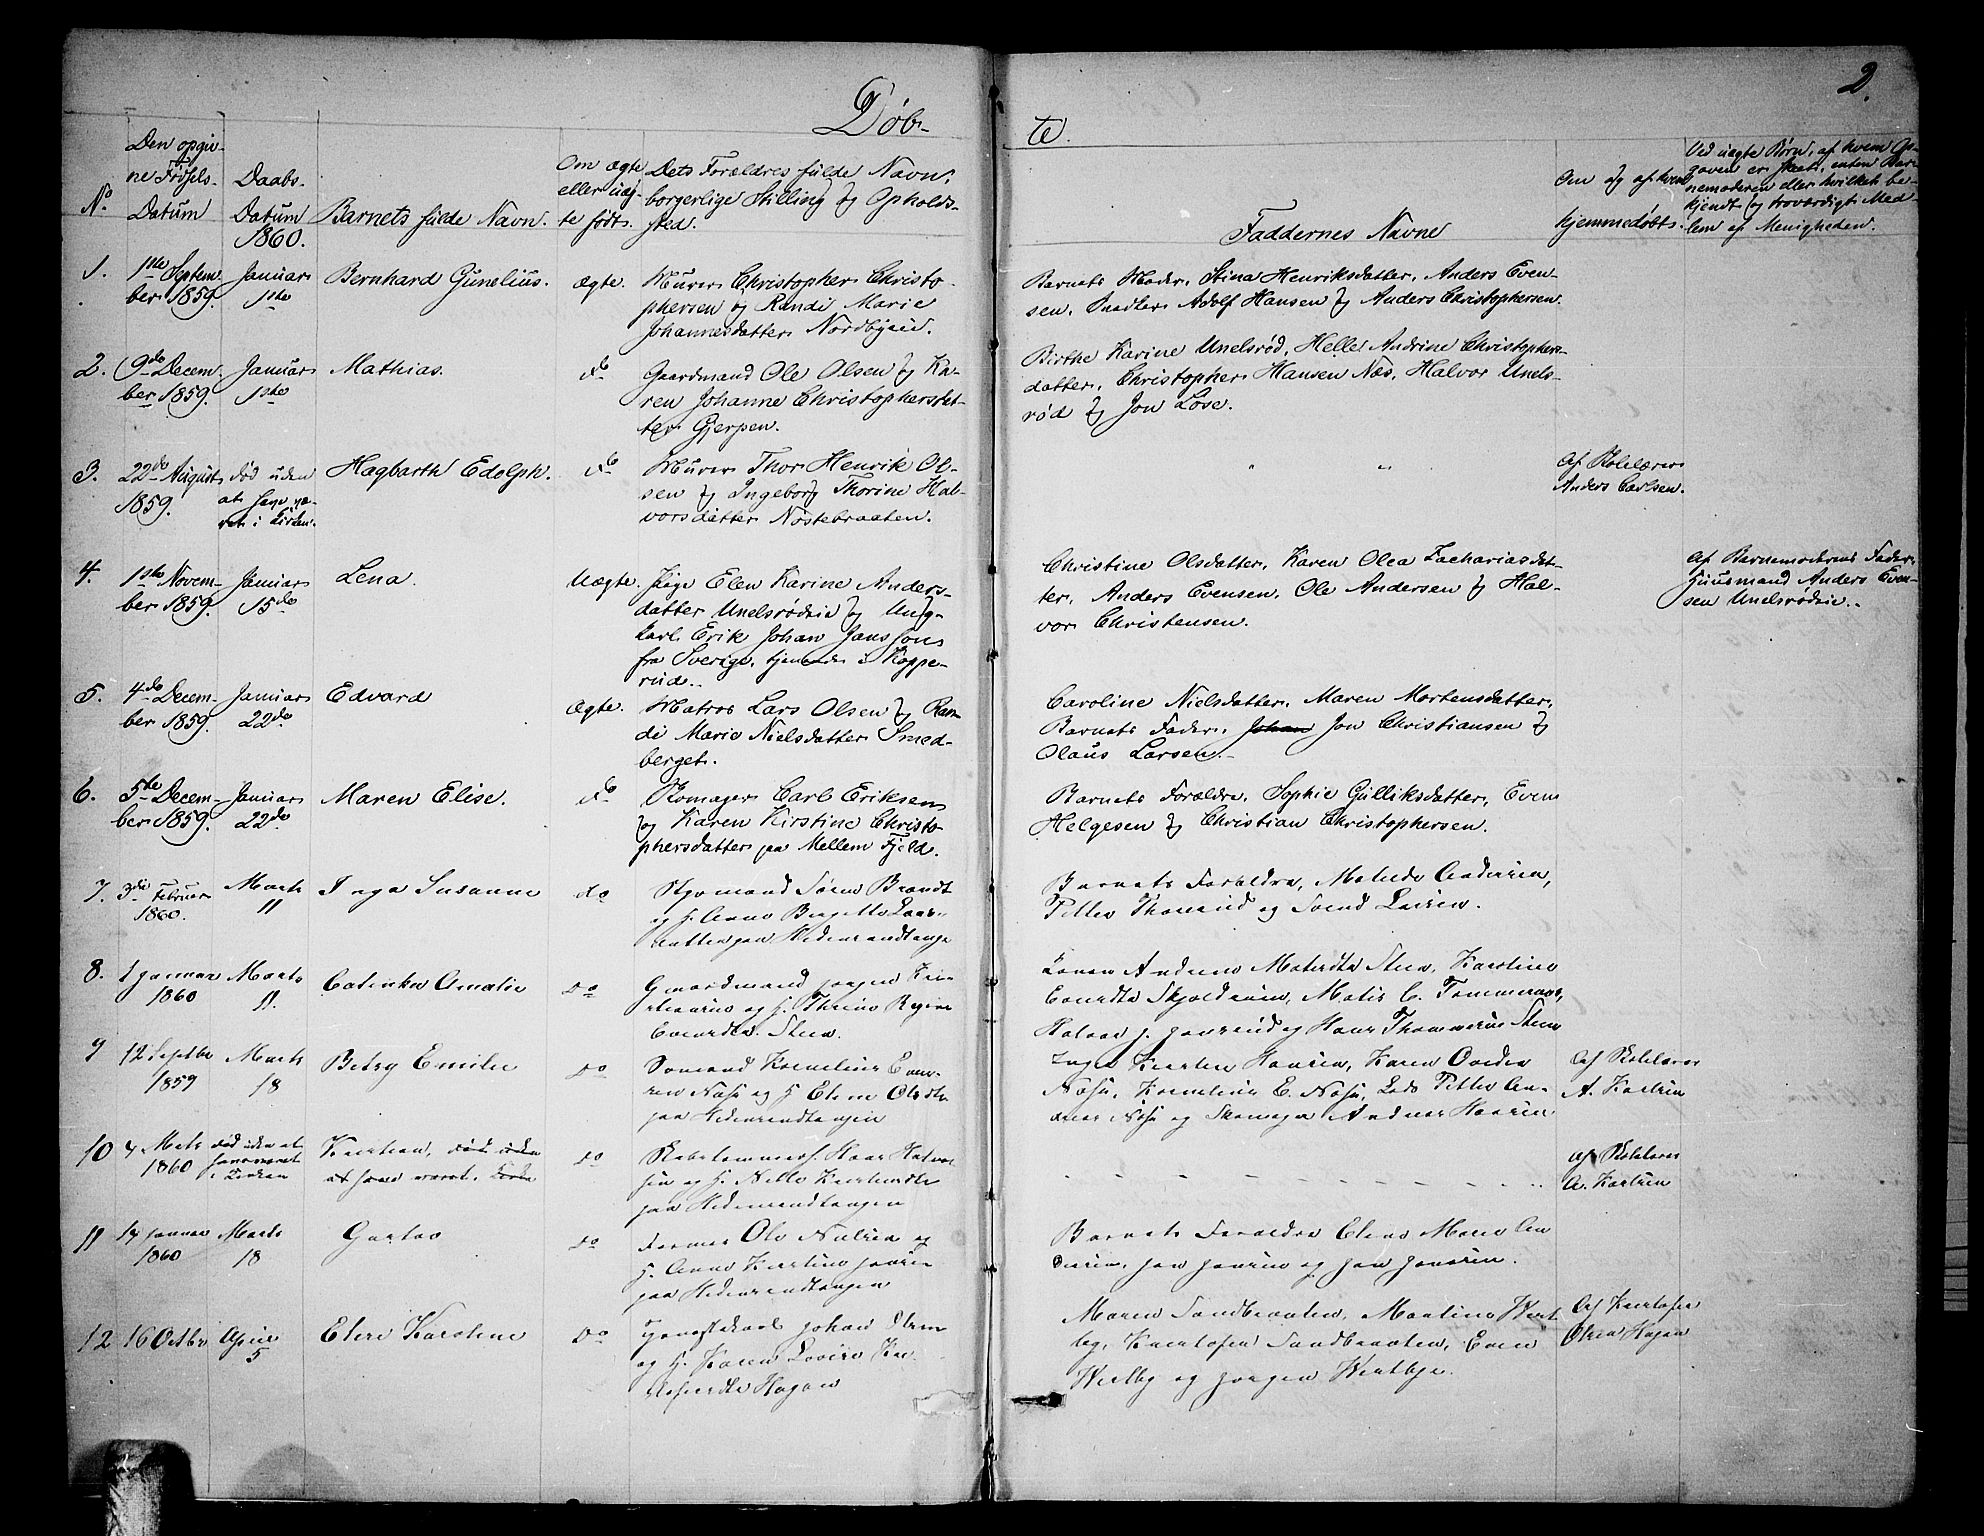 2.
Døb-
te.
Den opgiv-
ne Fødsels-
Datum
No
Daabs-
Datum
1860.
Barnets fulde Navn.
Om ægte
eller uæg-
te født.
Dets Forældres fulde Navn,
borgerlige Stilling og Opholds-
sted.
Faddernes Navne
Om og af hvem
hjemmedøbt.
Ved uægte Børn, af hvem Op-
gaven er skeet, enten Bar-
nemoderen eller hvilket be-
kjendt og troværdigt Med-
lem af Menigheden.
1.
1ste Septem-
ber 1859.
Januar
1ste
Bernhard Gunelius.
ægte.
Murer Christopher Christo-
phersen og Randi Marie
Johannesdatter Nordbyeie.
Barnets Moder, Stina Henriksdatter, Anders Even-
sen, Snedker Adolf Hansen og Anders Christophersen.
2.
9de Decem-
ber 1859.
Januar
1ste
Mathias.
do
Gaardmand Ole Olsen og Ka-
ren Johanne Christophersdat-
ter Gjerpen.
Birthe Karine Unelsrød, Helle Andrine Christophers-
datter, Christopher Hansen Næs, Halvor Unels-
rød og Jon Lose.
3.
22de August
1859.
død uden
at have væ-
ret i Kirken.
Hagbarth Edolph.
do
Murer Thor Henrik Ol-
sen og Ingeborg Thorine Hal-
vorsdatter Nøstebraaten.
Af Skolelærer
Anders Carlsen.
4.
1ste Novem-
ber 1859.
Januar
15de
Lena.
Uægte.
Pige Elen Karine Anders-
datter Unelsrødeie og Ung-
karl Erik Johan Jansson
fra Sverige, tjenende i Koppe-
rud.
Christine Olsdatter, Karen Olea Zachariasdat-
ter, Anders Evensen, Ole Andersen og Hal-
vor Christensen.
Af Barnemoderens Fader,
Huusmand Anders Even-
sen Unelsrødeie.
5.
4de Decem-
ber 1859.
Januar
22de
Edvard
Ægte.
Matros Lars Olsen og Ran-
di Marie Nielsdatter Smed-
berget.
Caroline Nielsdatter, Maren Mortensdatter,
Barnets Fader, Johan Jon Christiansen og
Olaus Larsen.
6.
5te Decem-
ber 1859.
Januar
22de
Maren Elise.
do
Skomager Carl Eriksen
og Karen Kirstine Christo-
phersdatter paa Mellem Fjeld.
Barnets Forældre, Sophie Gulliksdatter, Even
Helgesen og Christian Christophersen.
7.
3die Februar
1860.
Marts
11
Inga Susanne
do
Søren Brandt
og h. Anne
paa Hedenrandtange
Barnets Forældre,
og Svend Larsen.
8.
1 Januar
1860
Marts
11.
Catinka Amalie
Do
Gaardmand Jørgen
og h. Thrine Regine
9
12 Septbr
1859
Marts
18
Betzy Emilie
Do
Sømand Kornelius
Næss og h Elene Olsdtr
paa Hedenrandtangen
Inger Kirsten Hansen, Karen
Næss, Kornelius E. Næss, Lods Petter
Næss og Skomager Andreas Hansen
Af Skolelærer
A. Karlsen
10
4 Marts
1860
død uden at
have været
i Kirken
Kristian, død uden
at have været i Kirken
Do
Hans
og h. Nille
paa Hedenrandtangen
af Skolelærer
A. Karlsen
11
14 Januar
1860
Marts
18
Gustav
Do
Ole Nielsen og
h. Anne Kirstine Jansen
paa Hedenrandtangen
Barnets Forældre Elene Marie An-
dersen, Jan Jansen og Jan Jansen.
12
16 Octbr
April
5
Elene Karoline
Do
Johan Olsen
og h. Karen Lovise
Hagen
Maren Sandbraaten, Martine West-
by, Kristofer Sandbraaten, Even
Westby og Jørgen Westbye.
Af Kristofer
Olsen Hagen